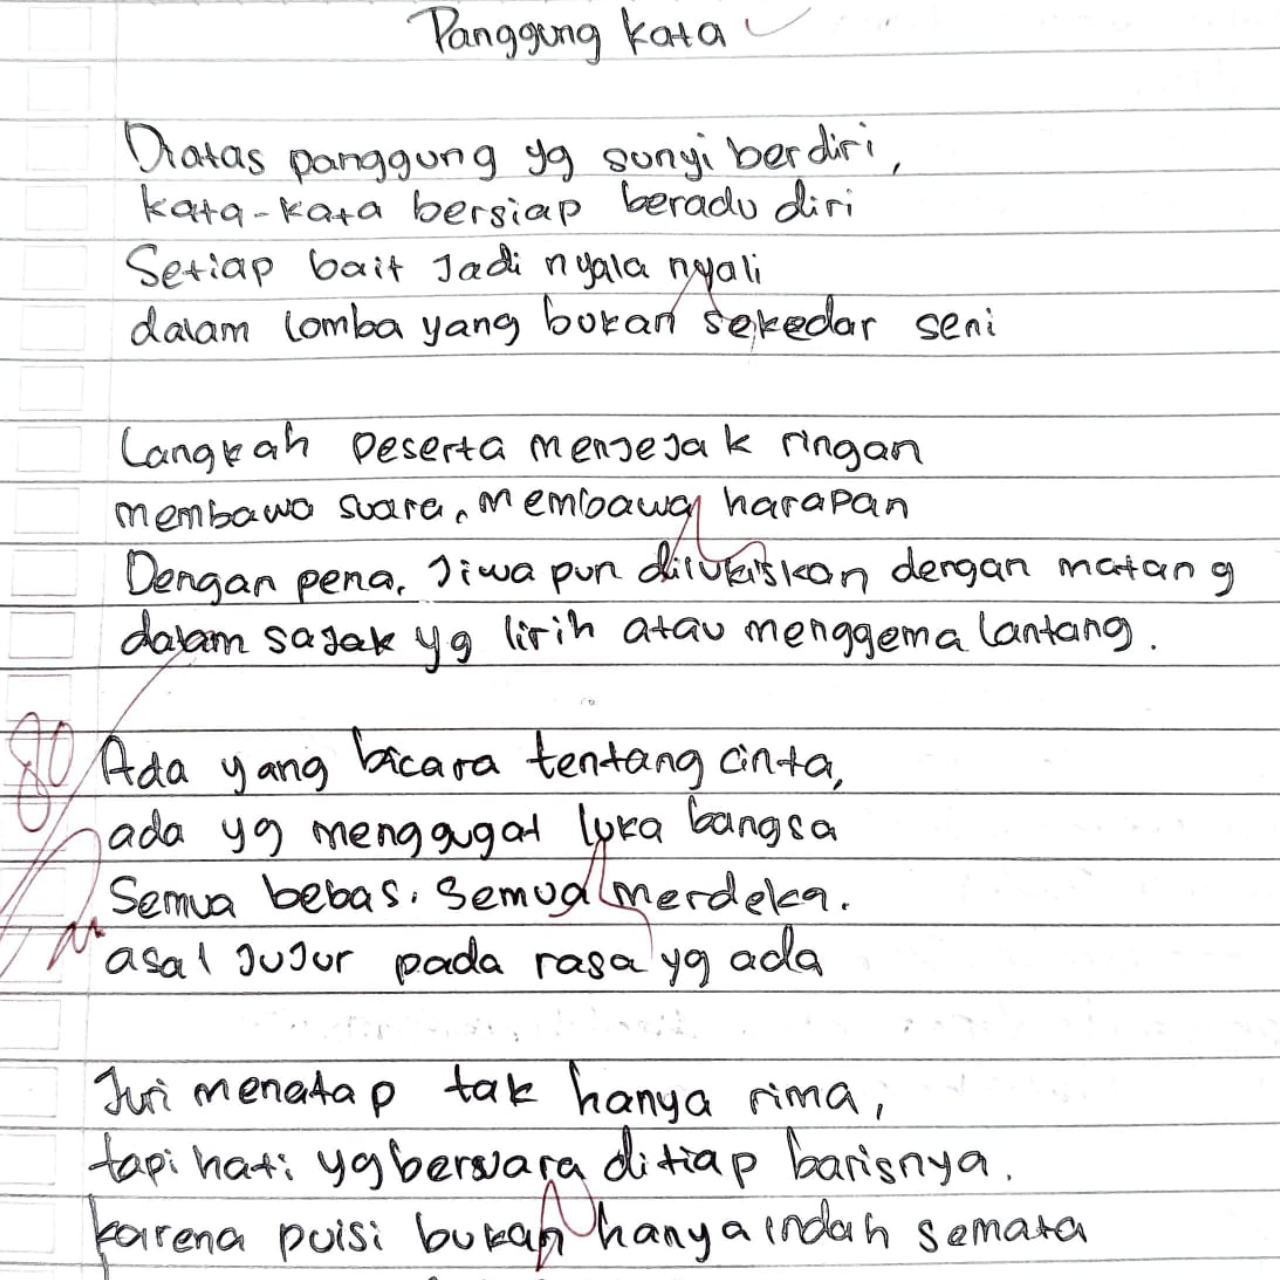 Panggung kata
Diatas panggung yg sunyi berdiri,
kata-kata bersiap beradu diri
Setiap bait Jadi nyala nyali
dalam lomba yang bukan sekedar seni
Langkah peserta menjejak ringan
membawa suara, membawa harapan
Dengan pena, Jiwa pun dilukiskan dengan matang
dalam sajak yg lirih atau menggema lantang.
80
Ada yang bicara tentang cinta,
ada yg menggugat luka bangsa
Semua bebas. Semua merdeka.
asal jujur pada rasa yg ada
Juri menatap tak hanya rima,
tapi hati yg bersuara ditiap barisnya.
karena puisi bukan hanya indah semata